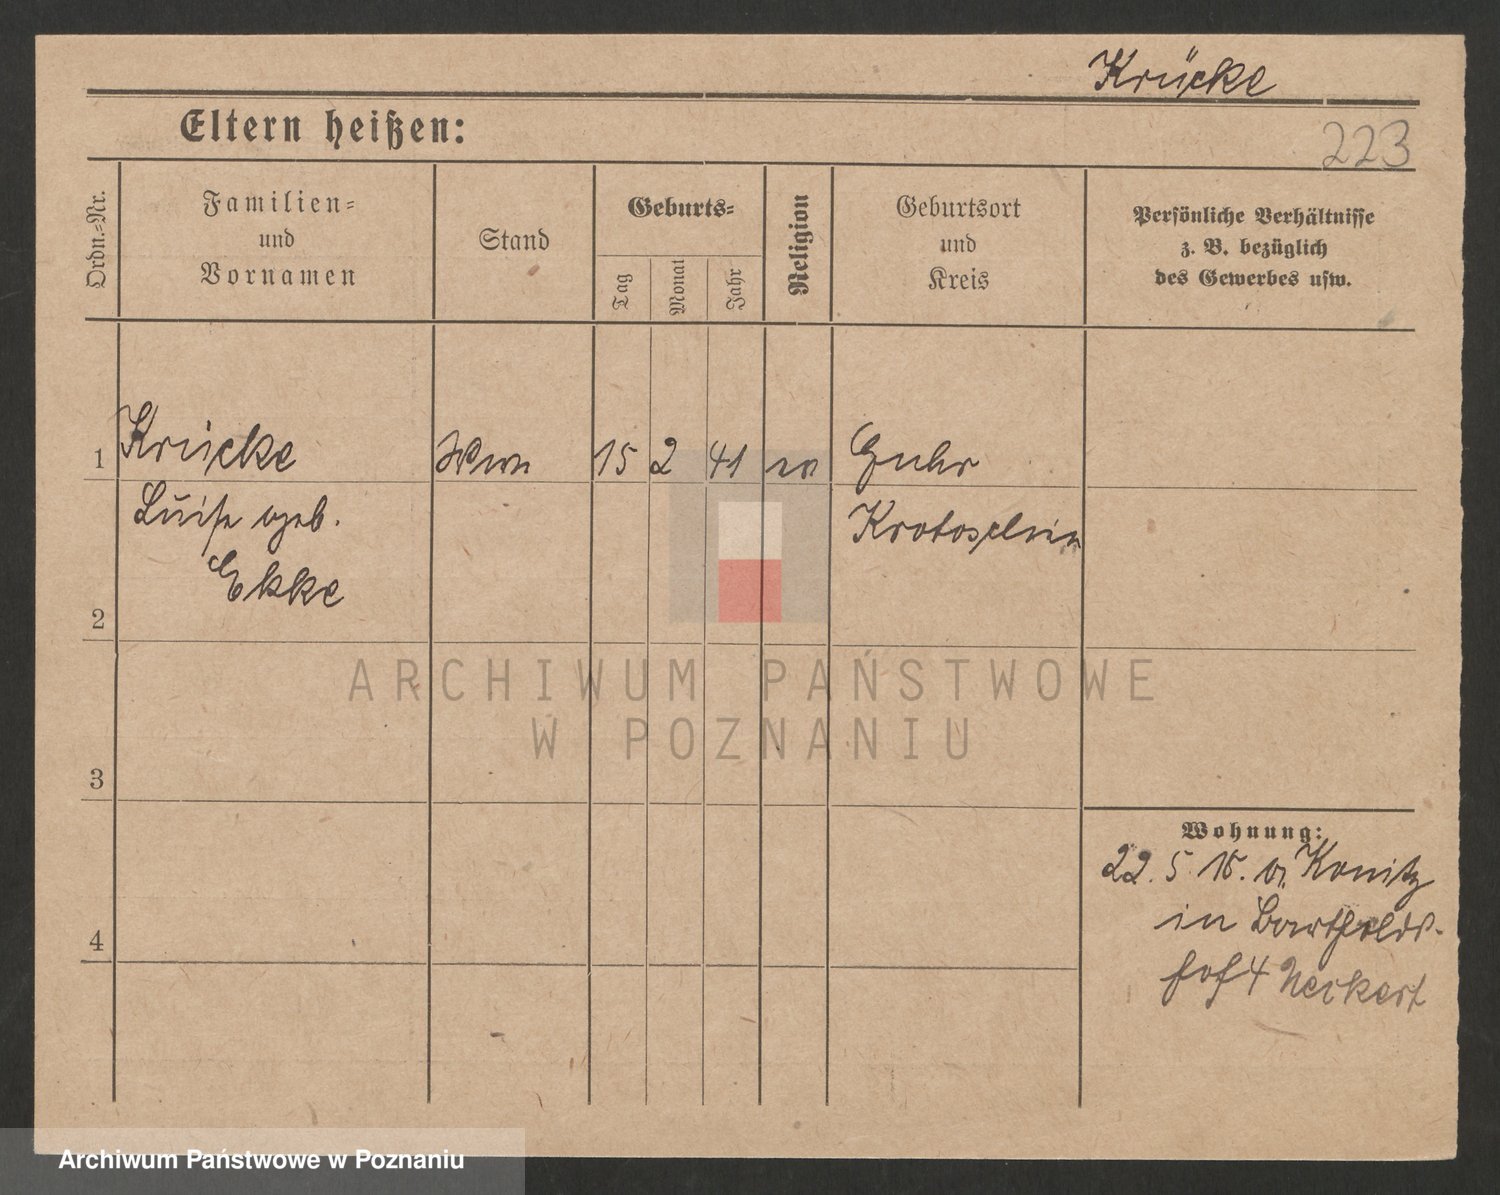 Krücke
Eltern heißen:
223
Ordn.-Nr.
Familien-
und
Vornamen
Stand
Geburts-
Tag
Monat
Jahr
Religion
Geburtsort
und
Kreis
Persönliche Verhältnisse
z. B. bezüglich
des Gewerbes usw.
1
Krücke
Wwe
15
2
41
ev
Guhr
Luise geb.
Krotoschin
Ekke
2
ARCHIWUM PAŃSTWOWE
W POZNANIU
3
Wohnung:
22. 5. 18. v. Konitz
in Bartholds-
4
hof 4 Neikert
Archiwum Państwowe w Poznaniu